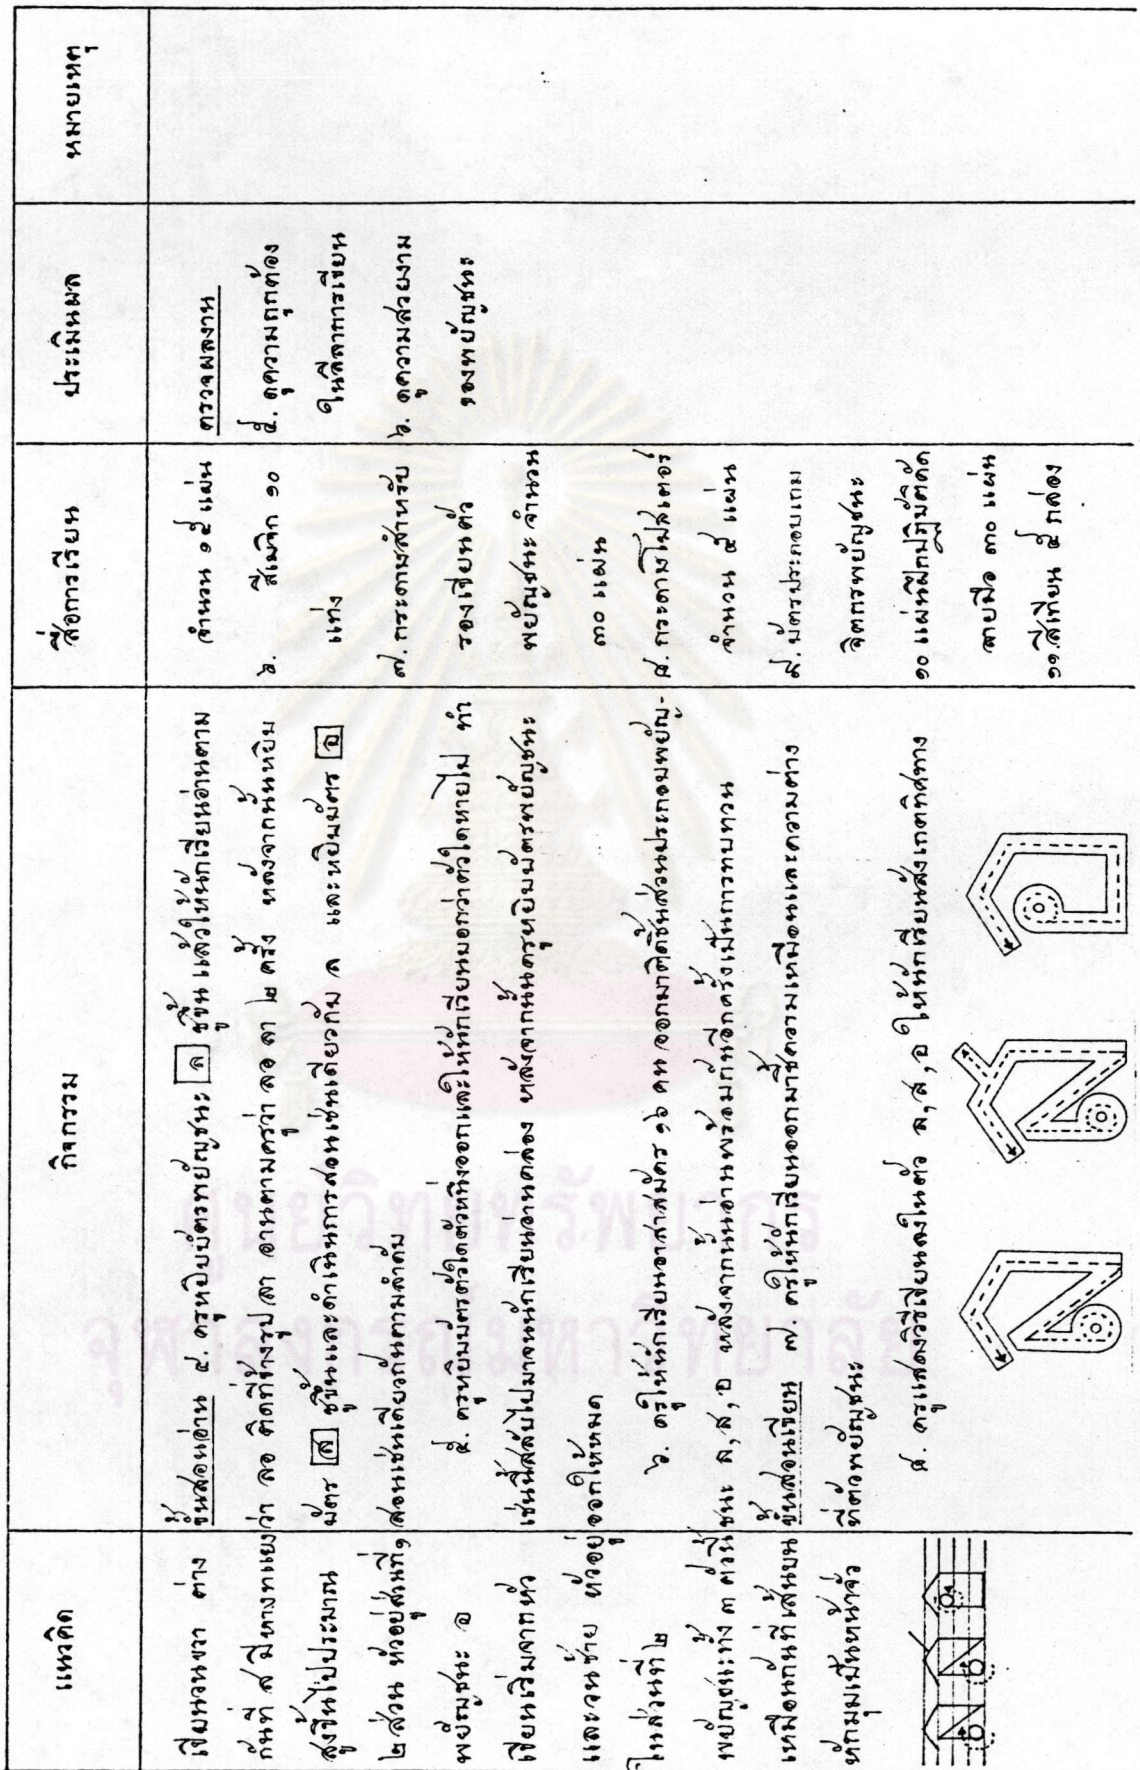 แนวคิด
เขียนวนขวา ต่าง
กันที่ ส มีหางทแยง
สูงขึ้นไปประมาณ
๒ ส่วน หัวอยู่ส่วนที่ ๑
พยัญชนะ อ
เขียนเริ่มจากหัว
และวนซ้าย หัวอยู่
ในส่วนที่ ๒
พยัญชนะทั้ง ๓ ตัวนี้
เหมือนกันที่เส้นบน
หักมุมเป็นหน้าจั่ว
กิจกรรม
ขั้นสอนอ่าน ๔. ครูหยิบบัตรพยัญชนะ ล ชูขึ้น แล้วให้นักเรียนอ่านตาม
ว่า ลอ ติดที่ข้างรูป ลา อ่านตามครูว่า ลอ ลา ๒ ครั้ง หลังจากนั้นหยิบ
บัตร ส ชูขึ้นและดำเนินการสอนเช่นเดียวกับ ล และหยิบบัตร อ
สอนเช่นเดียวกันตามลำดับ
๕. ครูหยิบบัตรตัวใดตัวหนึ่งออกและให้นักเรียนบอกว่าตัวใดหายไป ทำ
เช่นนี้สลับไปมาจนนักเรียนอ่านคล่อง หลังจากนั้นครูหยิบบัตรพยัญชนะ
ออกให้หมด
๖. ครูให้นักเรียนอาสาสมัคร ๑๖ คน ออกมาติดชิ้นส่วนประกอบพยัญ-
ชนะ ล, ส, อ หลังจากนั้นอ่านพร้อมกันอีกครั้งเป็นการทบทวน
ขั้นสอนเขียน ๗ ครูให้นักเรียนออกมาชี้ความเหมือนและความต่าง
ที่ตัวพยัญชนะ
๘. ครูแสดงวิธีเขียนลงในตัว ล, ส, อ ให้นักเรียนสังเกตทิศทาง
สื่อการเรียน
จำนวน ๑๕ แผ่น
๖. สีเมจิก ๑๐
แท่ง
๗. กระดาษสำหรับ
รองเขียนตัว
พยัญชนะ จำนวน
๓๐ แผ่น
๘. กระดาษโปสเตอร์
จำนวน ๕ แผ่น
๙. บัตรประกอบเกม
จิตกรพยัญชนะ
๑๐ แผ่นฝึกปฏิบัติคัด
ลายมือ ๓๐ แผ่น
๑๑. สีเทียน ๕ กล่อง
ประเมินผล
ตรวจผลงาน
๕. ดูความถูกต้อง
ในลีลาการเขียน
๖. ดูความสวยงาม
ของพยัญชนะ
หมายเหตุ
ศูนย์วิทยทรัพยากร
จุฬาลงกรณ์มหาวิทยาลัย